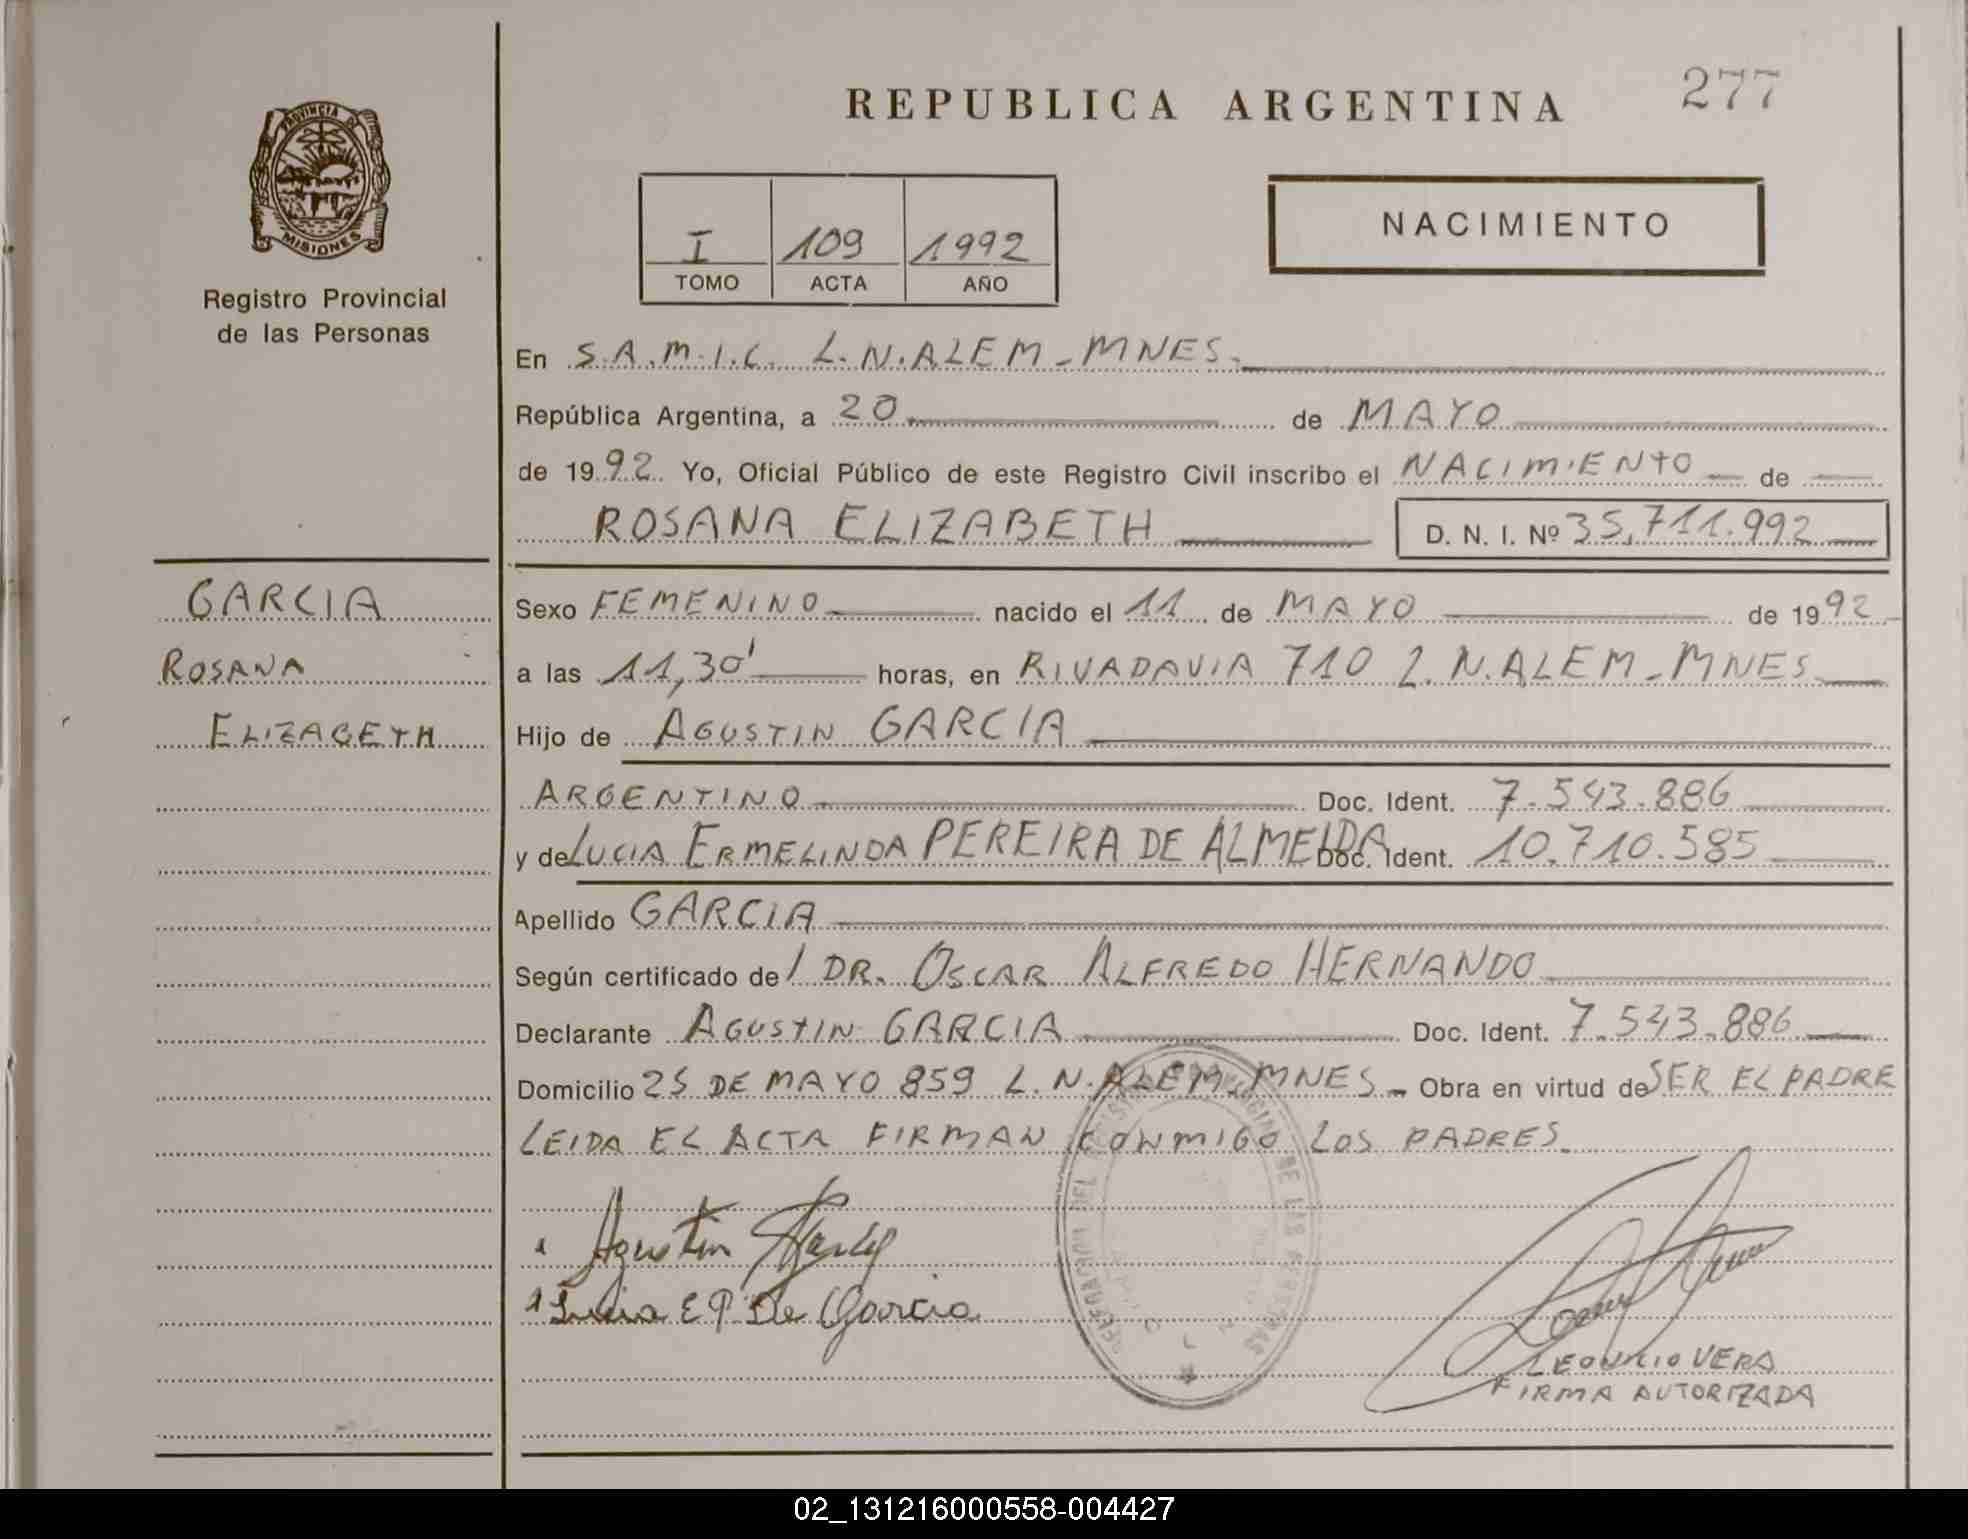 277
REPUBLICA ARGENTINA
PROVINCIA DE
MISIONES
Registro Provincial
de las Personas
I 109 1992
TOMO ACTA AÑO
NACIMIENTO
En S.A.M.I.C. L.N.ALEM-MNES.
República Argentina, a 20 de MAYO
de 1992. Yo, Oficial Público de este Registro Civil inscribo el NACIMIENTO de
ROSANA ELIZABETH D. N. I. Nº 35,711.992
GARCIA
ROSANA
ELIZABETH
Sexo FEMENINO nacido el 11 de MAYO de 1992
a las 11,30' horas, en RIVADAVIA 710 L.N.ALEM-MNES
Hijo de AGUSTIN GARCIA
ARGENTINO Doc. Ident. 7.543.886
y de LUCIA ERMELINDA PEREIRA DE ALMEIDA Doc. Ident. 10.710.585
Apellido GARCIA
Según certificado de / DR. OSCAR ALFREDO HERNANDO
Declarante AGUSTIN GARCIA Doc. Ident. 7.543.886
Domicilio 25 DE MAYO 859 L.N.ALEM-MNES- Obra en virtud de SER EL PADRE
LEIDA EL ACTA FIRMAN CONMIGO LOS PADRES.
Agustin
Lucia E P De Garcia
DEL REGISTRO PROVINCIAL DE LAS PERSONAS
LEONCIO VERA
FIRMA AUTORIZADA
02_131216000558-004427